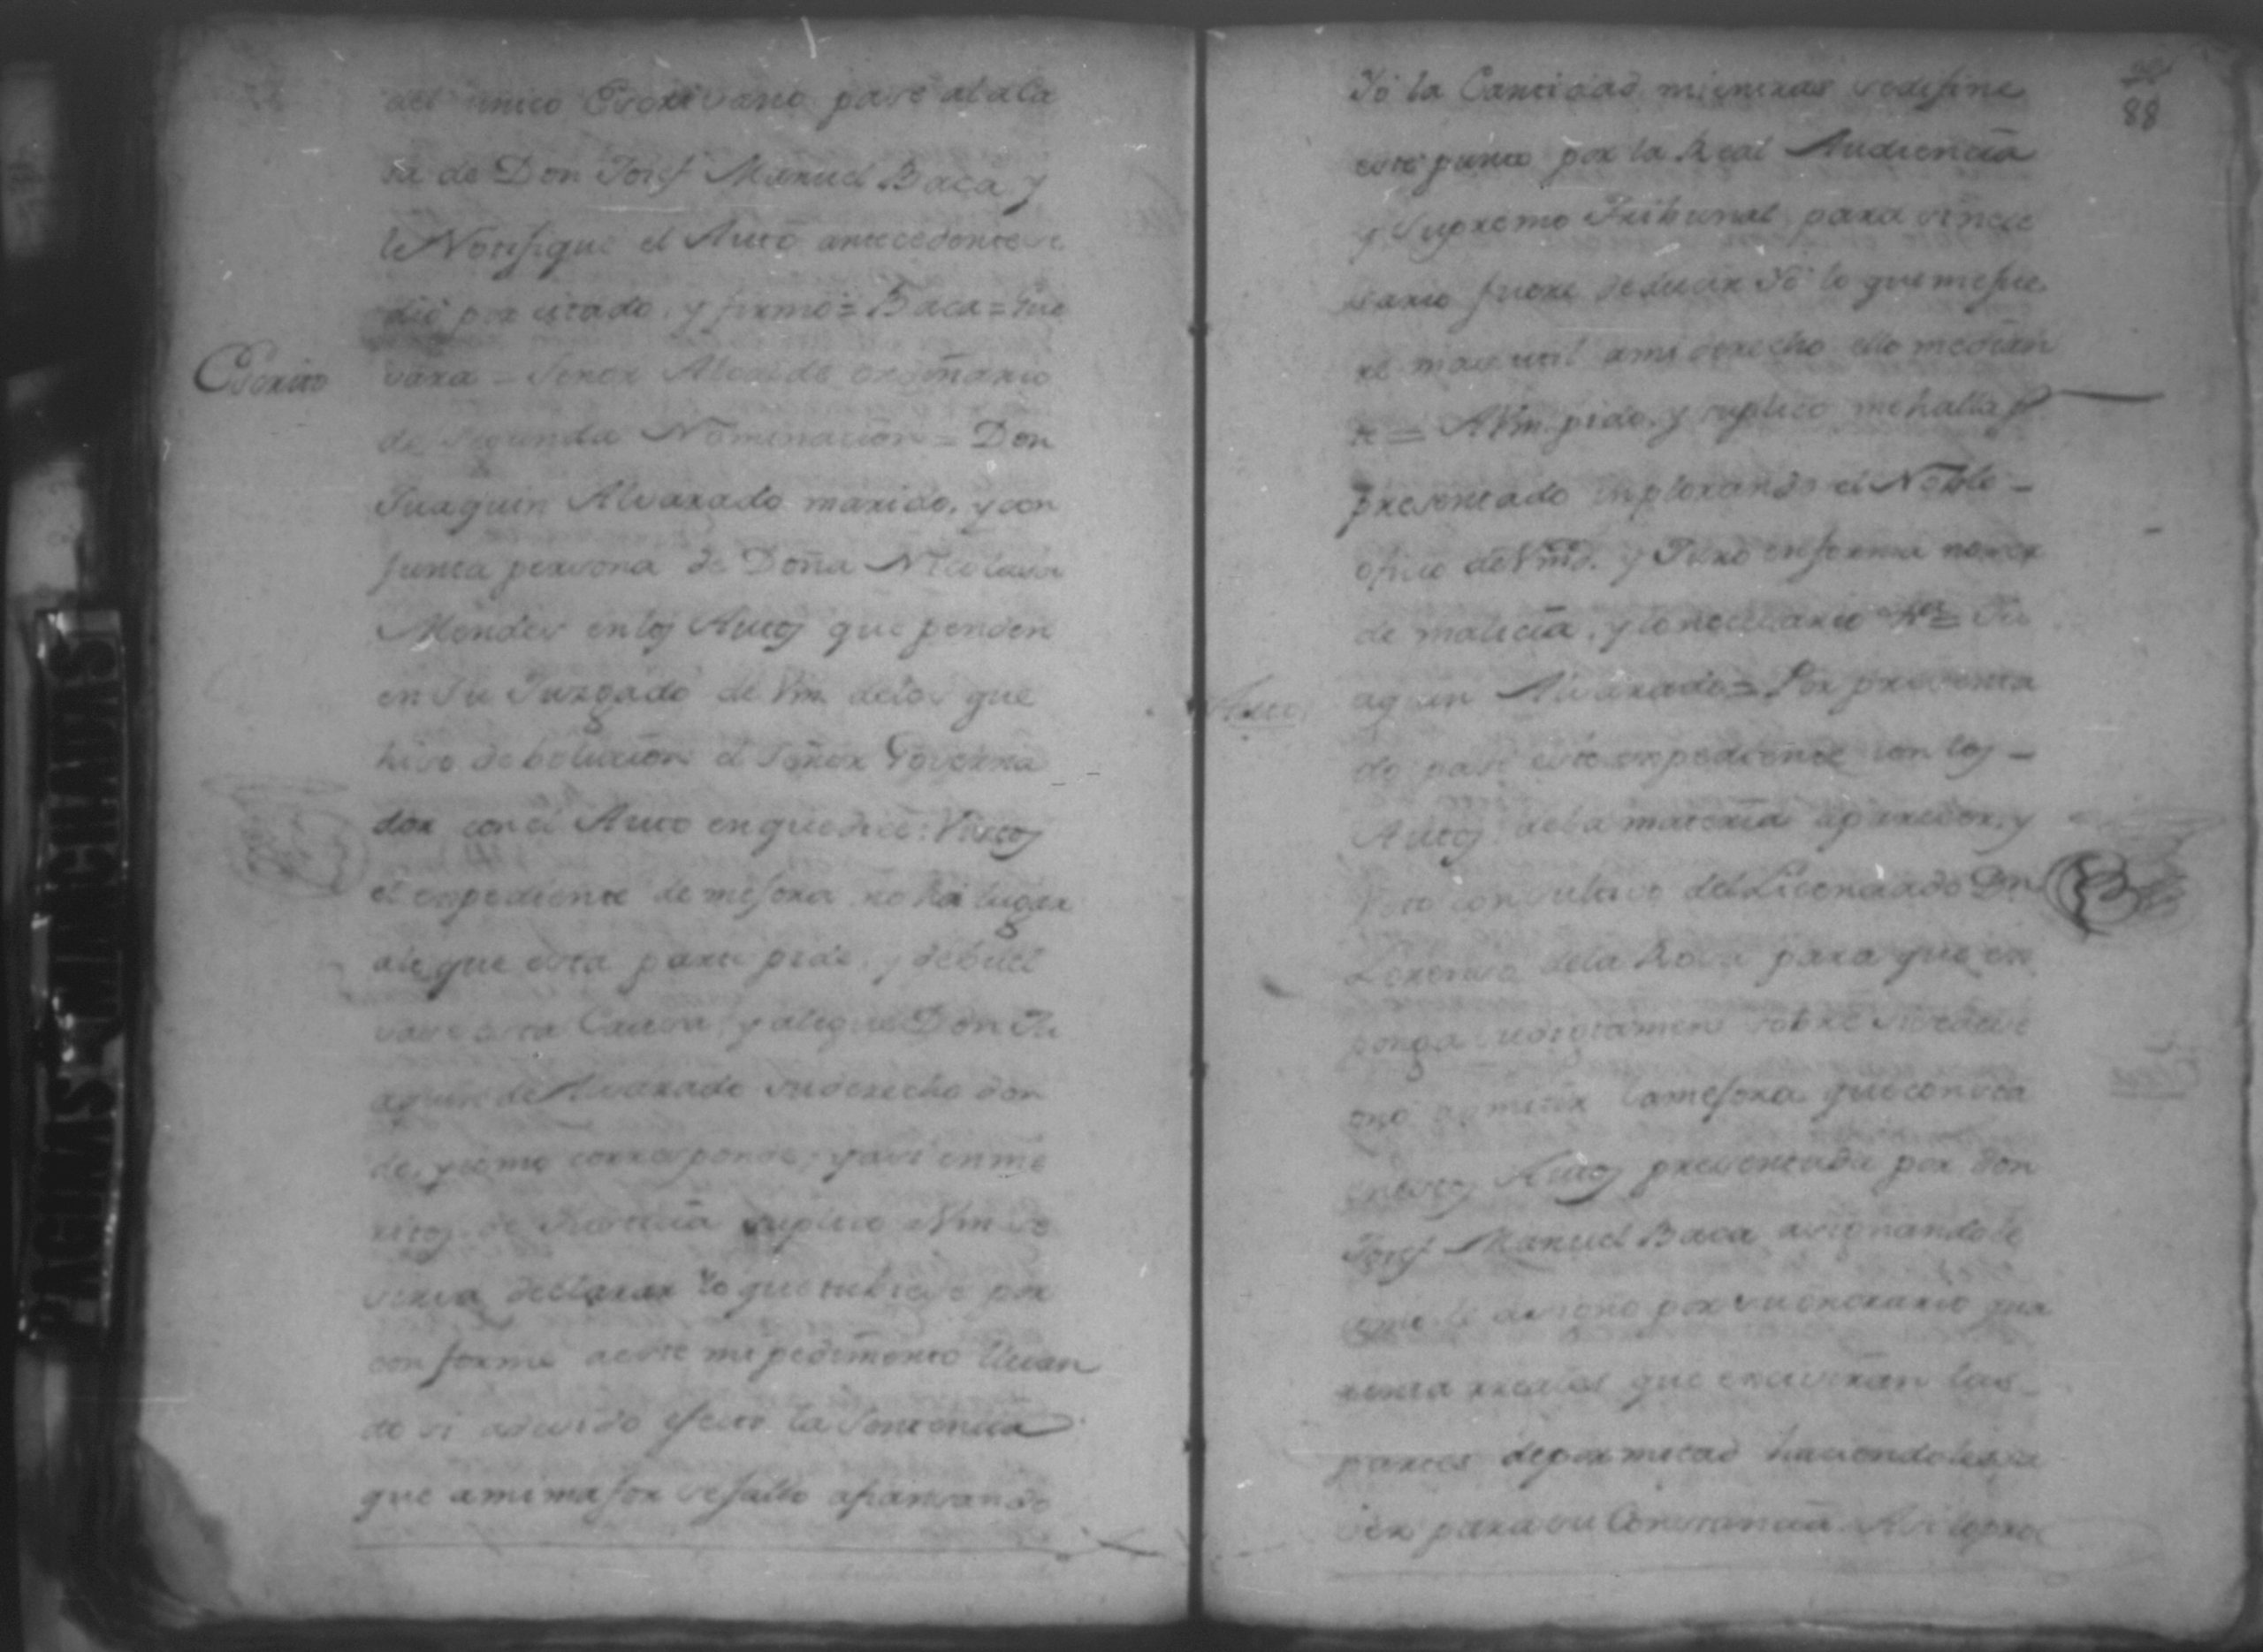 del unico Escrivano pase ala ca
sa de Don Josef Manuel Baca y
le Notifique el Auto antecedente se
dio por citado, y firmo = Baca = Gue
Escrito
vara = Señor Alcalde ordinario
de segunda Nominacion = Don
Juaquin Alvarado marido, y con
junta persona de Doña Nicolasa
Mendes en los Autos que penden
en su Juzgado de Vm. delos que
hiso debolucion el Señor Governa
dor con el Auto en que dice: Vistos
el expediente de mejora no ha lugar
alo que esta parte pide, y debuel
vase esta Causa, y alegue Don Ju
aquin de Alvarado su derecho don
de, y como corresponde, y asi en me
ritos de Justicia suplico a Vm se
sirva declarar lo que tubiese por
conforme a este mi pedimento llevan
do a devido efecto la Sentencia
que a mi mafor se fallo afiansando
88
Yo la Cantidad mientras se define
este punto por la Real Audiencia
y Supremo Tribunal para si nece
sario fuere deducir Yo lo que me fue
re mas util a mi derecho ello median
te = A Vm. pido, y suplico me halla pr
presentado implorando el Noble
oficio de Vmd. y Juro en forma no ser
de malicia, y lo necesario &a = Ju
aquin Alvarado = Por presenta
Auto
do pase este expediente con los
Autos dela materia aparecer, y
Voto consultivo del Licenciado Dn
Lorenso dela Rosa para que ex
ponga su dictamen sobre si se deve
o no admitir la mejora que consta
en estos Autos presentada por Don
Josef Manuel Baca asignandole
como le asigno por su onorario qua
renta rreales que exiviran las
partes de por mitad haciendoles sa
ver para su Constancia. Asi lo pro